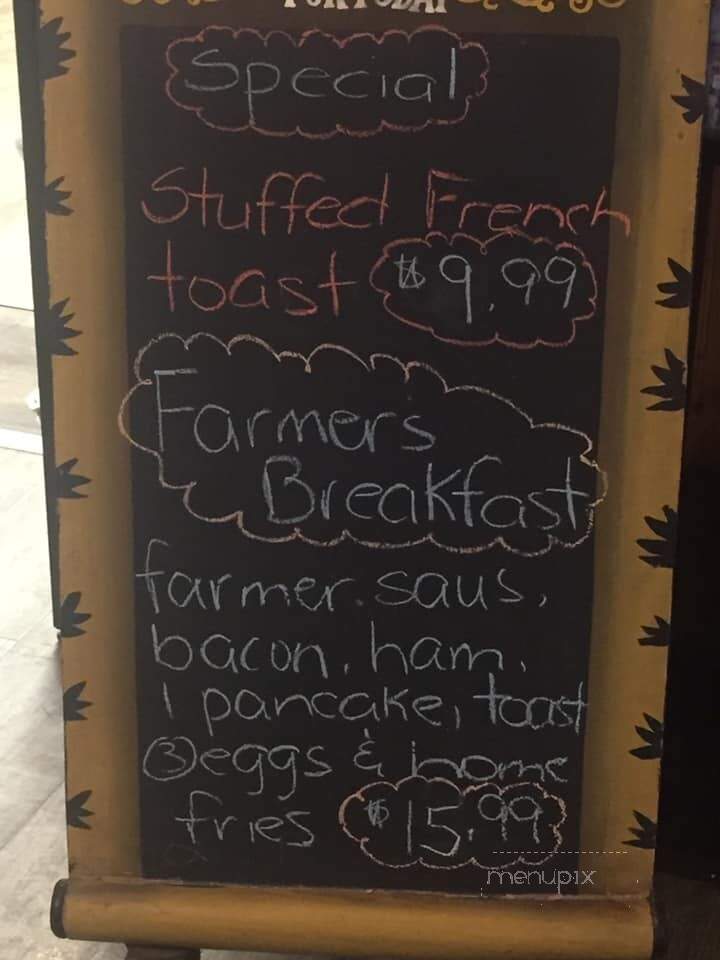 FOR TODAY
Special
Stuffed French
toast $9.99
Farmers
Breakfast
farmer saus,
bacon, ham,
1 pancake, toast
③ eggs & home
fries $15.99
menupix